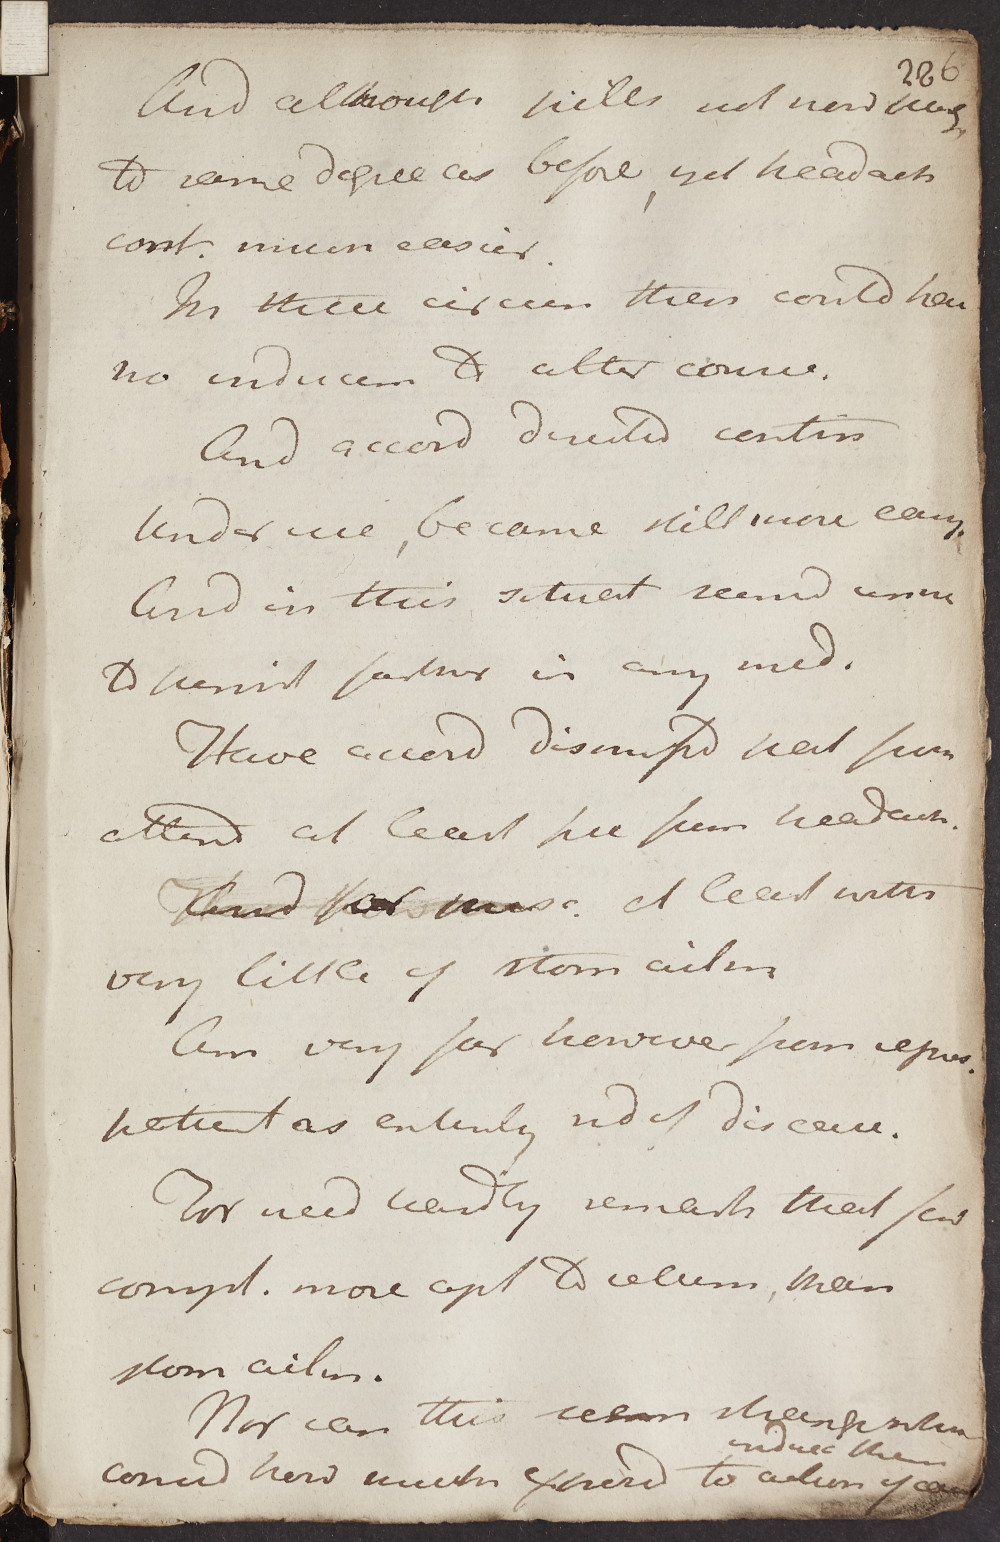 226
And although pills not now purg
to same degree as before, yet headach
cont. much easier.
In these circum then could hav
no inducem to alter course.
And accord directed contin
Under use, became still more easy.
And in this situat seemd unne
to persist farther in any med.
Have accord dismissd pat from
attend at least free from headach.
at least with
very little of stom ailm
Am very far however from repres.
patient as entirely rid of disease.
For need hardly remark that few
compl. more apt to return, than
stom ailm.
Nor can this seem strange when
induce them
consid how much exposd to action of cau